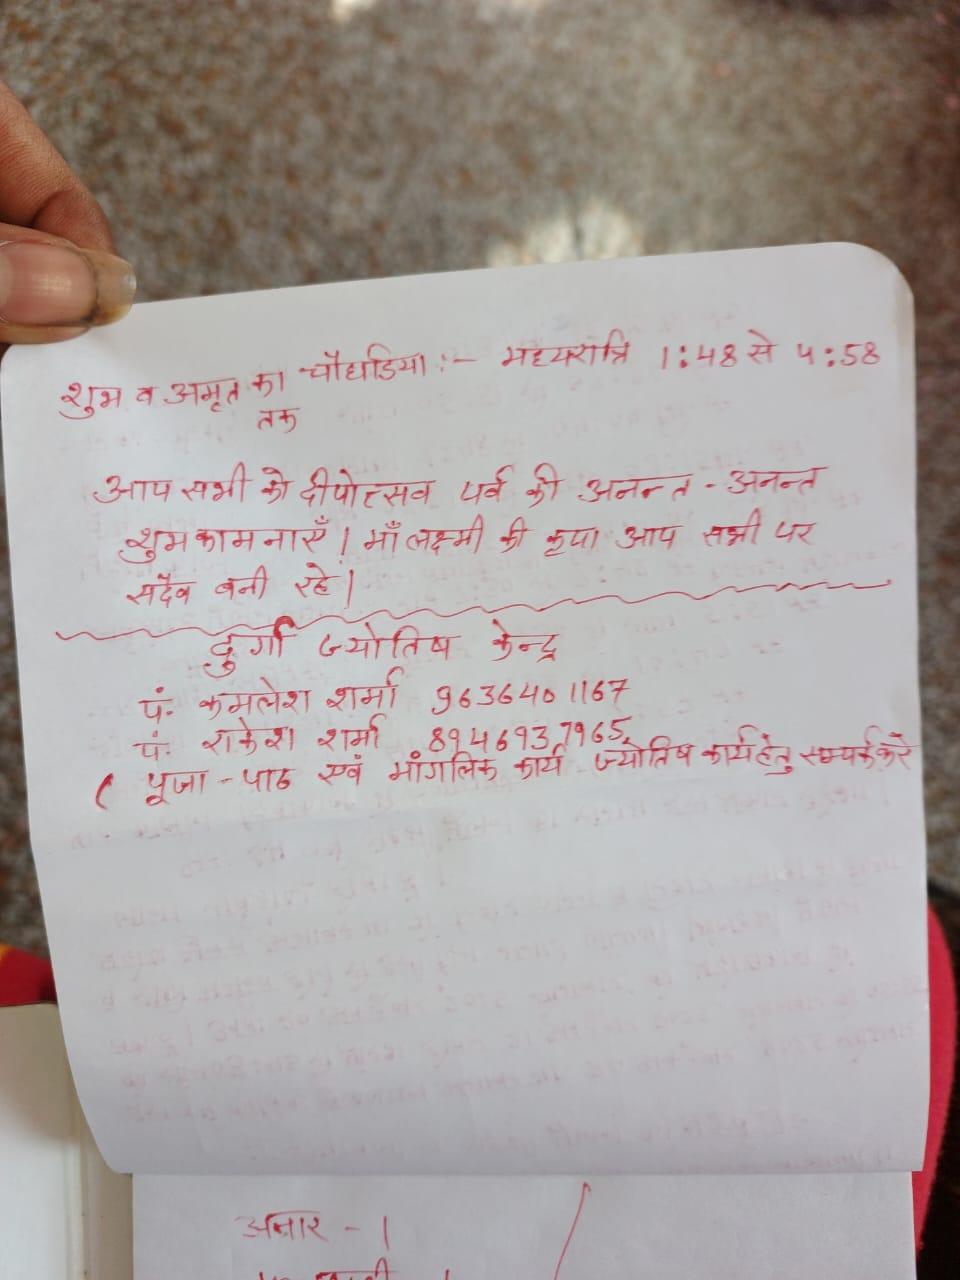 शुभ व अमृत का चौघडिया :- मध्यरात्रि 1:48 से 4:58
तक
आप सभी को दीपोत्सव पर्व की अनन्त - अनन्त
शुभकामनाएँ । माँ लक्ष्मी की कृपा आप सभी पर
सदैव बनी रहे ।
दुर्गा ज्योतिष केन्द्र
पं. कमलेश शर्मा 9636401167
पं. राकेश शर्मा 8946937965
( पूजा - पाठ एवं मांगलिक कार्य ज्योतिष कार्य हेतु सम्पर्क करे
अनार - 1